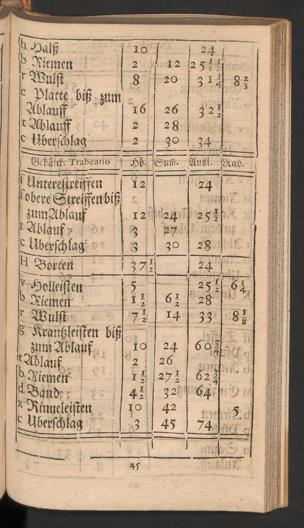 h Halß 10 24
b Riemen 2 12
r Wulst 8 20 31 1/4 8 2/3
e Platte biß zum
Ablauff 16 26 32 1/2
t Ablauff 2 28
c Uberschlag 2 30 34
Gebälck: Trabeatio Hö. Sum. Außl.
Unterestreiffen 12 24
f obere Streiffen biß
zum Ablauf 12 24
t Ablauf 3 27
c Uberschlag 3 30 28
H Borten 37 1/2 24
v Holleisten 5 25 1/2 6 1/4
b Riemen 1 1/2 6 1/2 28
r Wulst 7 1/2 14 33 8 1/8
g Krantzleisten biß
zum Ablauf 10 24
t Ablauf 2 26
b Riemen 1 1/2 27 1/2 62 3/4
d Band 4 1/2 32 64
x Rinneleisten 10 42 5
c Uberschlag 3 45 74
45